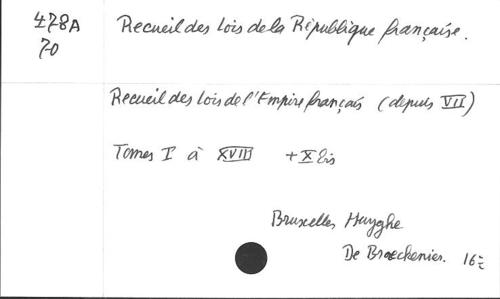 478A
70
Recueil des Lois de la République française.
Recueil des Lois de l'Empire français (depuis VII)
Tomes I à XVIII + X bis
Bruxelles Huyghe
De Braeckenier. 16º